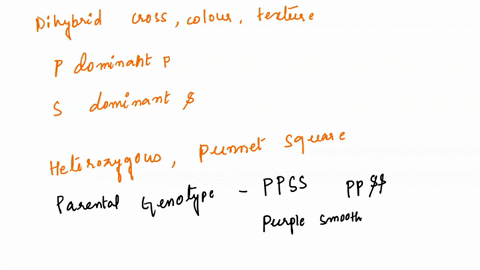 Dihybrid cross, colour, texture
P dominant p
S dominant $
Heterozygous, punnet square
Parental Genotype - PPSS PP$$
Purple smooth